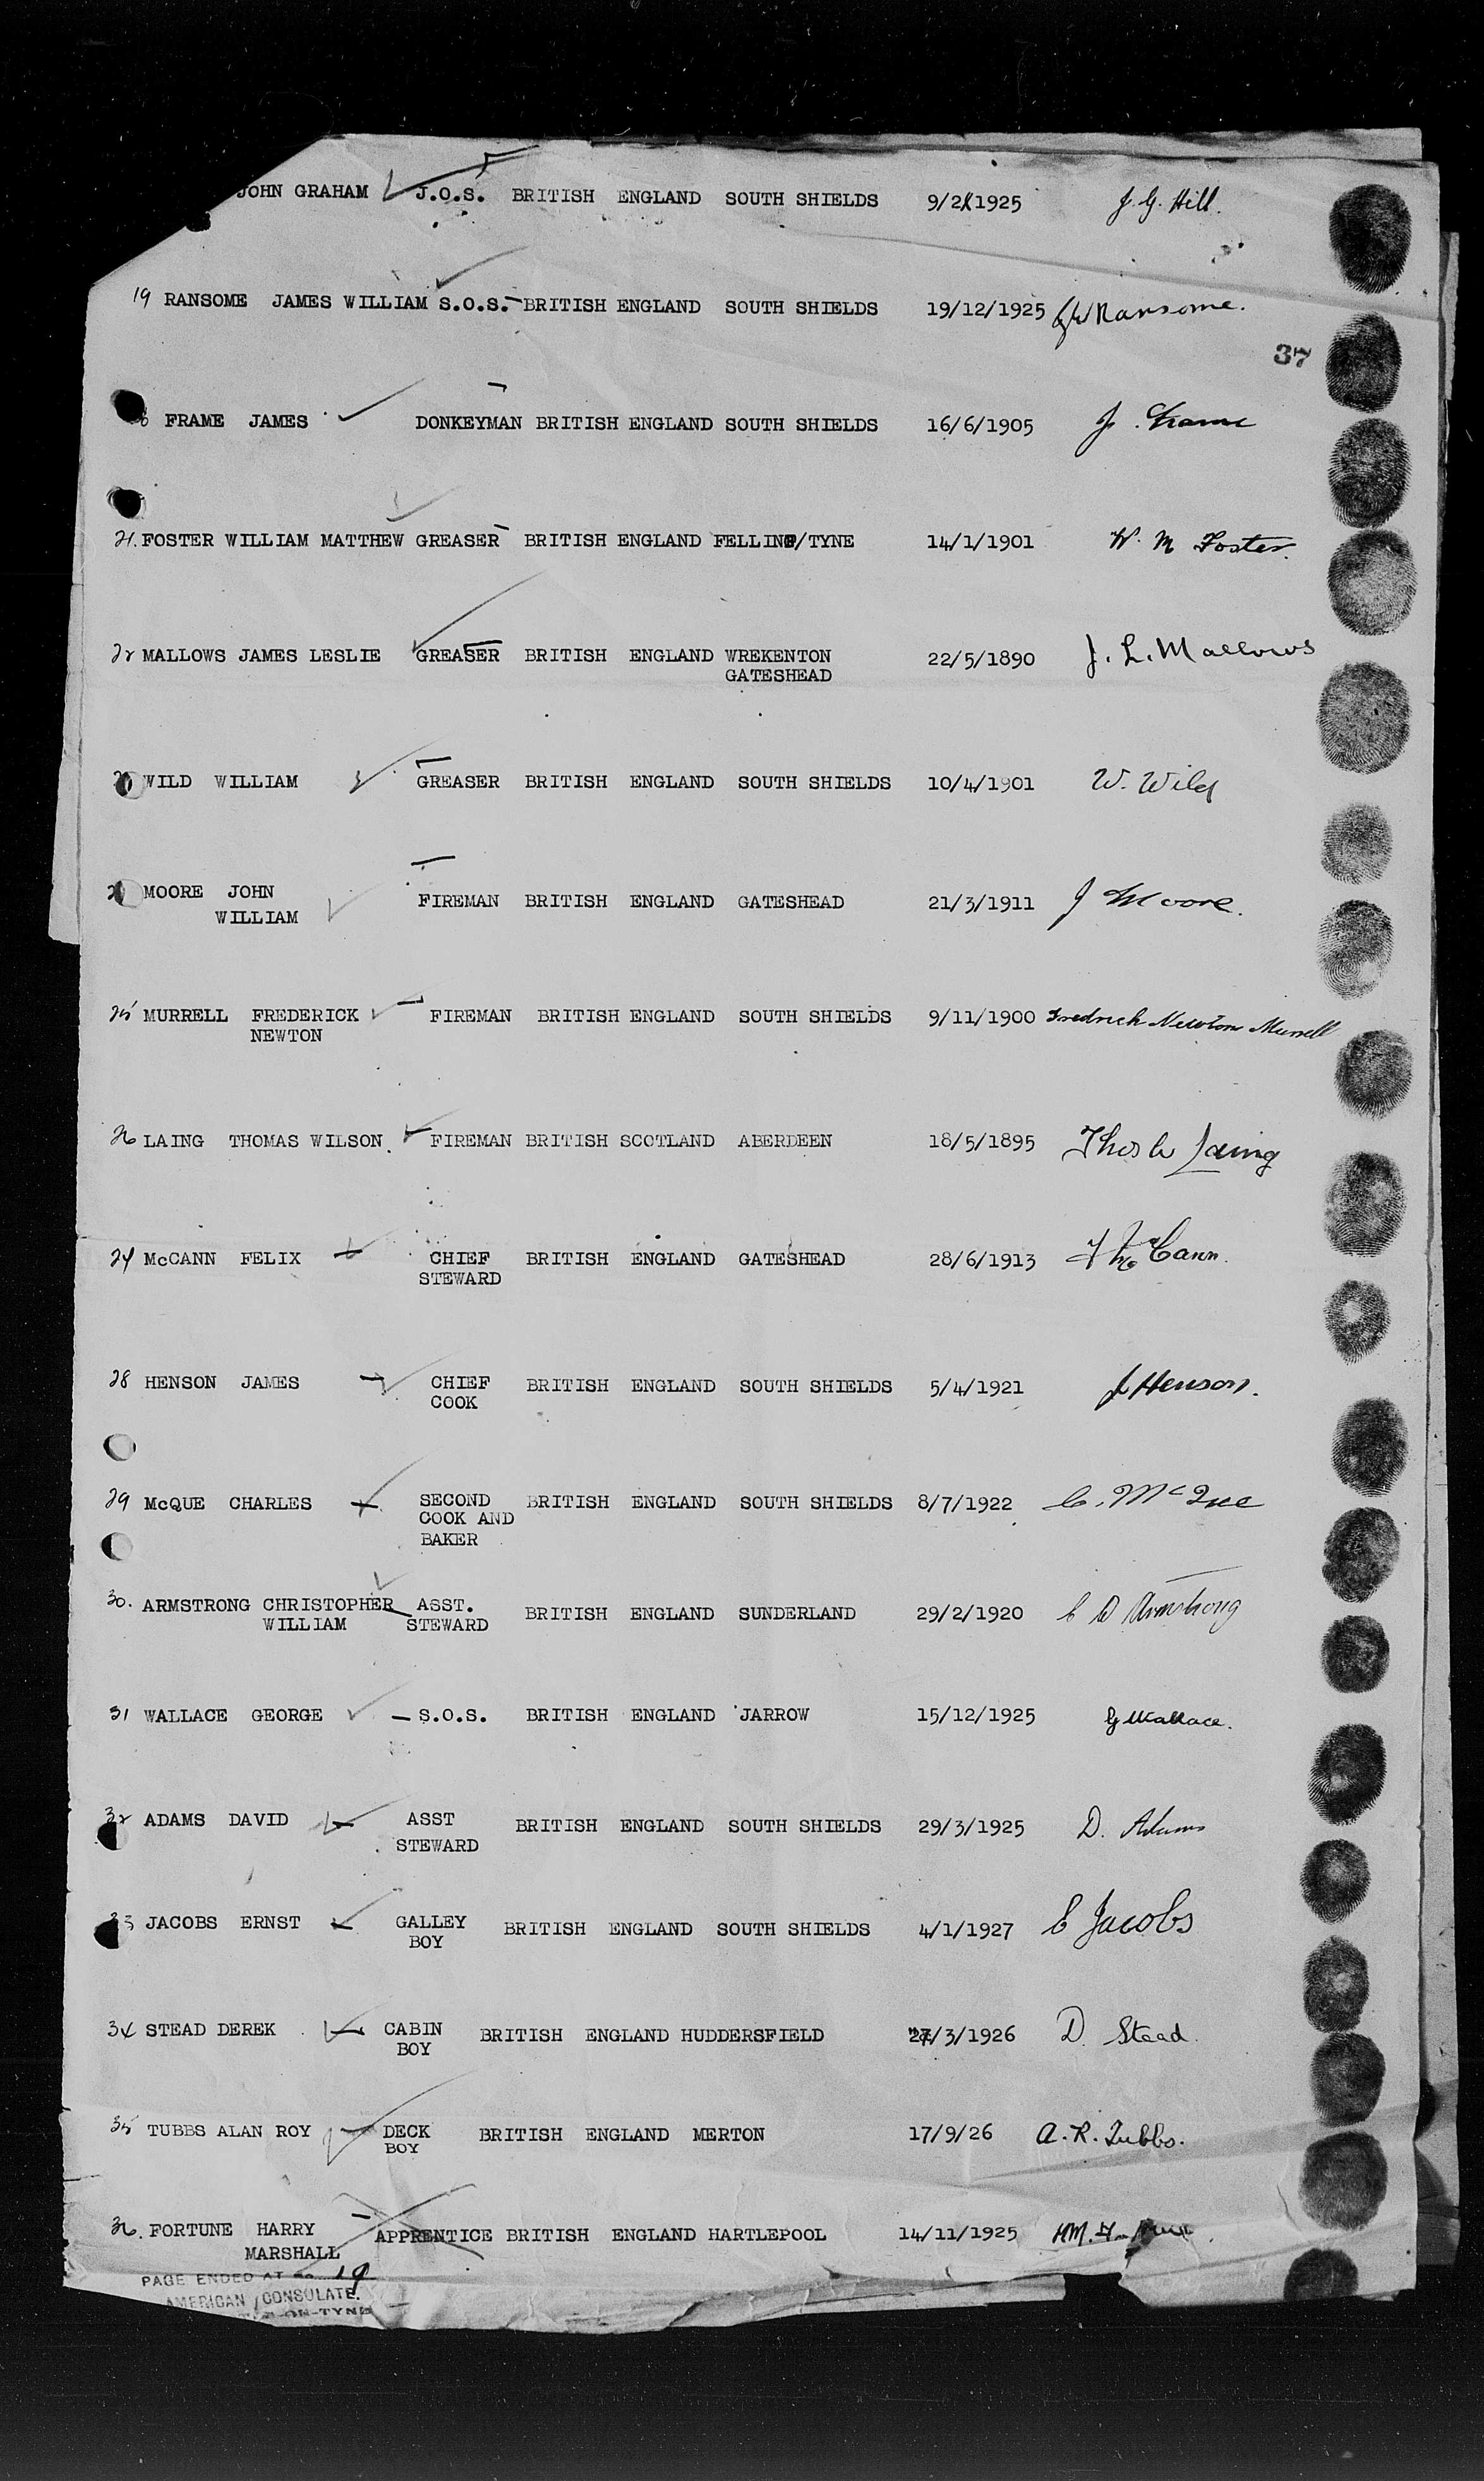 JOHN GRAHAM J.O.S. BRITISH ENGLAND SOUTH SHIELDS 9/2/1925 J. G. Hill.
19 RANSOME JAMES WILLIAM S.O.S. BRITISH ENGLAND SOUTH SHIELDS 19/12/1925 J W Ransome.
37
FRAME JAMES DONKEYMAN BRITISH ENGLAND SOUTH SHIELDS 16/6/1905 J. Frame
21. FOSTER WILLIAM MATTHEW GREASER BRITISH ENGLAND FELLING/TYNE 14/1/1901 W. M Foster.
22 MALLOWS JAMES LESLIE GREASER BRITISH ENGLAND WREKENTON 22/5/1890 J. L. Mallows
GATESHEAD
WILD WILLIAM GREASER BRITISH ENGLAND SOUTH SHIELDS 10/4/1901 W. Wild
MOORE JOHN FIREMAN BRITISH ENGLAND GATESHEAD 21/3/1911 J Moore.
WILLIAM
25 MURRELL FREDERICK FIREMAN BRITISH ENGLAND SOUTH SHIELDS 9/11/1900 Fredrick Newton Murrell
NEWTON
26 LAING THOMAS WILSON. FIREMAN BRITISH SCOTLAND ABERDEEN 18/5/1895 Thos W Laing
27 McCANN FELIX CHIEF BRITISH ENGLAND GATESHEAD 28/6/1913 F McCann.
STEWARD
28 HENSON JAMES CHIEF BRITISH ENGLAND SOUTH SHIELDS 5/4/1921 J Henson.
COOK
29 McQUE CHARLES SECOND BRITISH ENGLAND SOUTH SHIELDS 8/7/1922 C. McQue
COOK AND
BAKER
30. ARMSTRONG CHRISTOPHER ASST. BRITISH ENGLAND SUNDERLAND 29/2/1920 C W Armstrong
WILLIAM STEWARD
31 WALLACE GEORGE S.O.S. BRITISH ENGLAND JARROW 15/12/1925 G Wallace.
32 ADAMS DAVID ASST BRITISH ENGLAND SOUTH SHIELDS 29/3/1925 D. Adams
STEWARD
33 JACOBS ERNST GALLEY BRITISH ENGLAND SOUTH SHIELDS 4/1/1927 E Jacobs
BOY
34 STEAD DEREK CABIN BRITISH ENGLAND HUDDERSFIELD 27/3/1926 D. Stead.
BOY
35 TUBBS ALAN ROY DECK BRITISH ENGLAND MERTON 17/9/26 A. R. Tubbs.
BOY
36. FORTUNE HARRY APPRENTICE BRITISH ENGLAND HARTLEPOOL 14/11/1925
MARSHALL
PAGE ENDED AT No. 19
AMERICAN CONSULATE.
-ON-TYNE